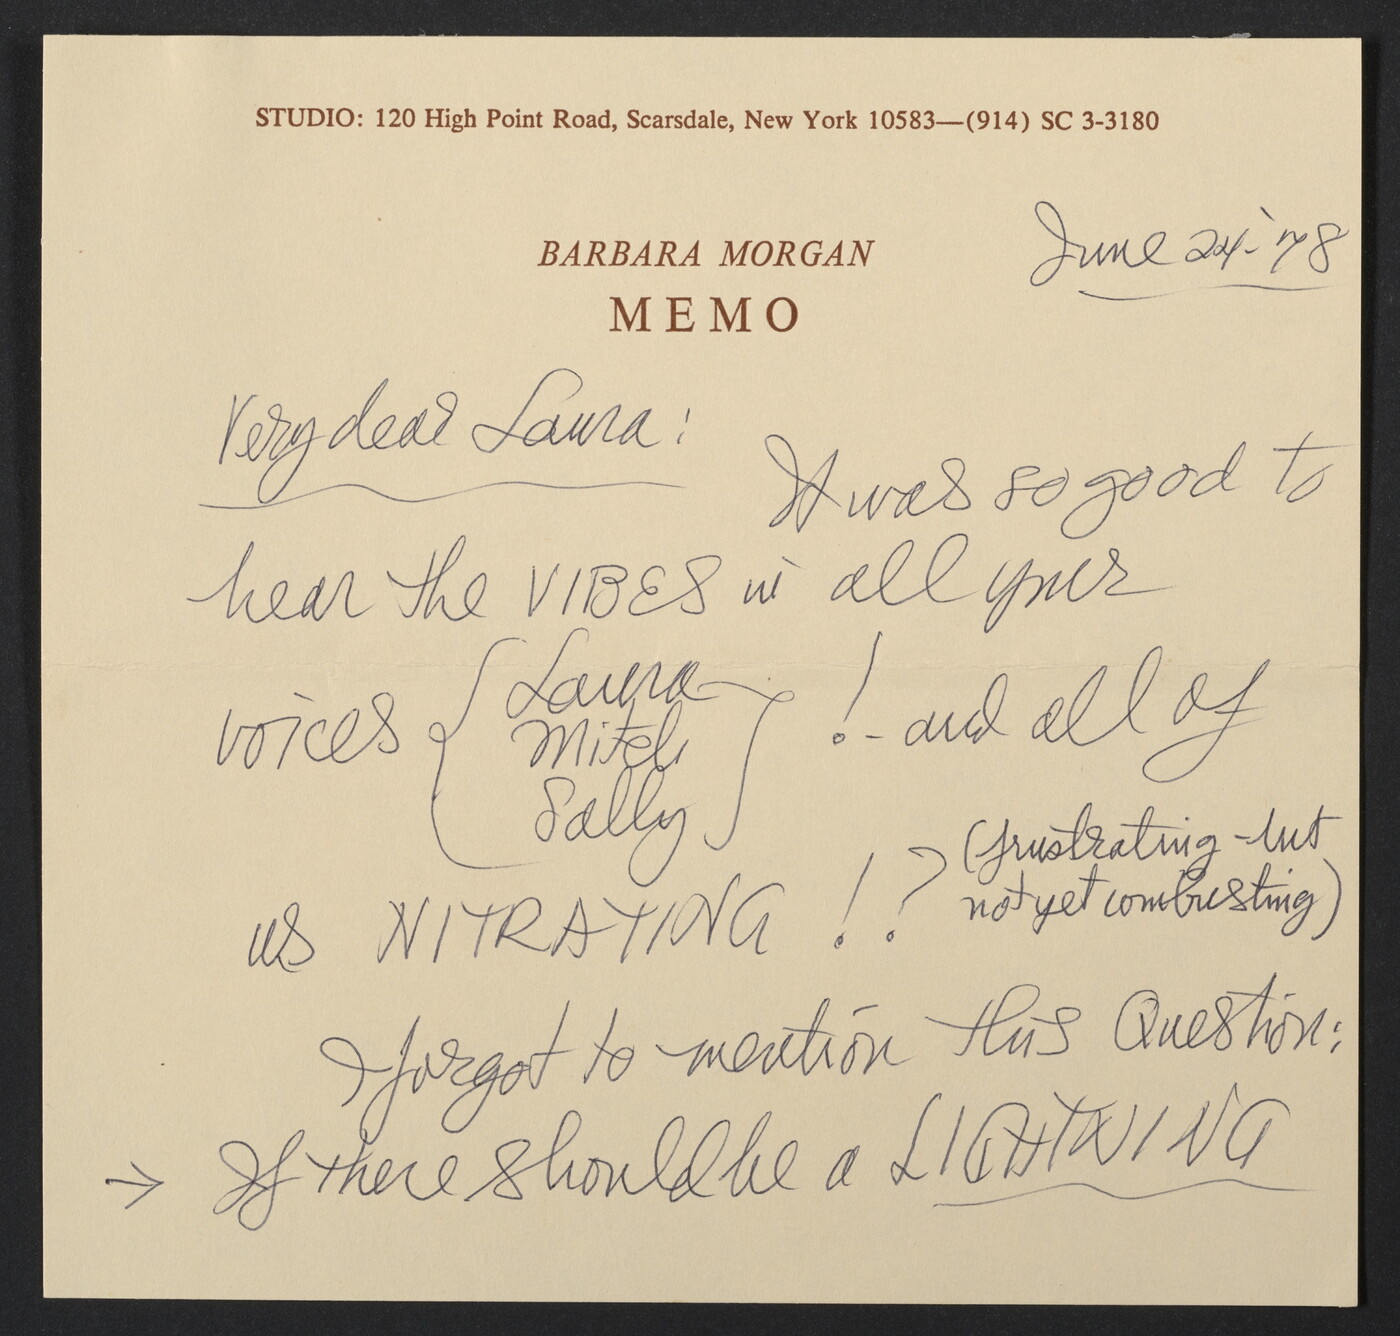 STUDIO: 120 High Point Road, Scarsdale, New York 10583—(914) SC 3-3180
June 24-'78
BARBARA MORGAN
MEMO
Very dear Laura:
It was so good to
hear the VIBES in all your
voices { Laura
Mitch
Sally } ! - and all of
us NITRATING !? (frustrating - but
not yet combusting)
I forgot to mention this Question:
→ If there should be a LIGHTNING